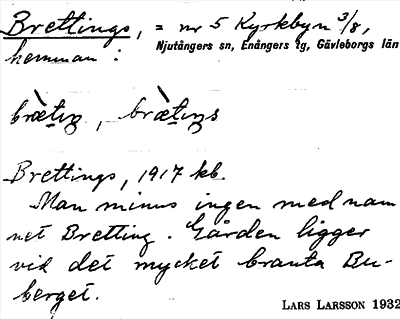 Brettings, = nr 5 Kyrkbyn 3/8,
Njutångers sn, Enångers tg, Gävleborgs län
hemman:
brætiŋ, brætiŋs
Brettings, 1917 kb.
Man minns ingen med nam
net Bretting. Gården ligger
vid det mycket branta Bu-
berget.
LARS LARSSON 1932